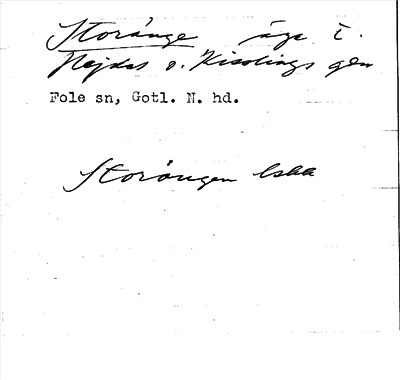 Storänge äng i.
Hejdes o. Kisslings gen
Fole sn, Gotl. N. hd.
Storängen